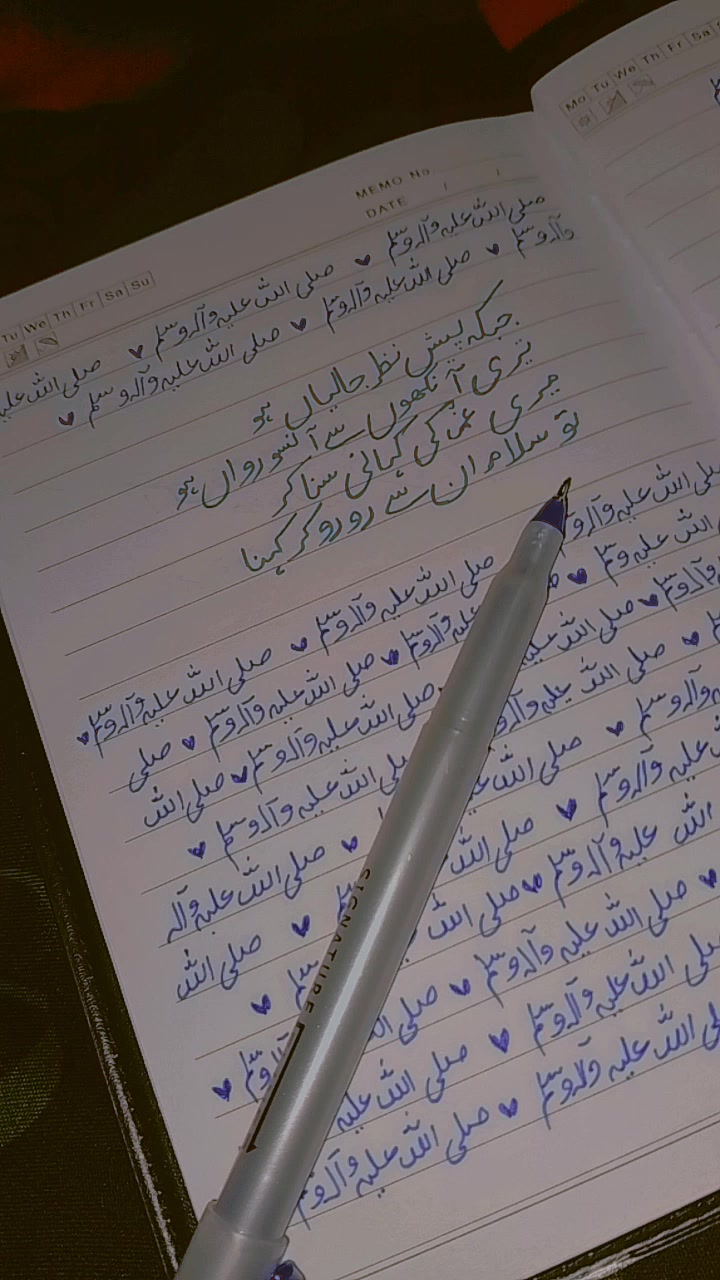 MEMO No.
DATE / /
Mo Tu We Th Fr Sa
Tu We Th Fr Sa Su
صلی اللہ علیہ وآلہ وسلم ♥ صلی اللہ علیہ وآلہ وسلم ♥ صلی اللہ علیہ
وآلہ وسلم ♥ صلی اللہ علیہ وآلہ وسلم ♥ صلی اللہ علیہ وآلہ وسلم ♥
جبکہ پیش نظر جالیاں ہو
تری آنکھوں سے آنسو رواں ہو
میری غم کی کہانی سنا کر
تو سلام ان سے رو رو کر کہنا
صلی اللہ علیہ وآلہ وسلم ♥ صلی اللہ علیہ وآلہ وسلم ♥
صلی اللہ علیہ وسلم ♥ وآلہ وسلم ♥ صلی اللہ علیہ وآلہ وسلم ♥ صلی
اللہ علیہ وآلہ وسلم ♥ صلی اللہ علیہ وآلہ وسلم ♥ صلی اللہ
علیہ وآلہ وسلم ♥ صلی اللہ علیہ وآلہ وسلم ♥
وآلہ وسلم ♥ صلی اللہ ♥ صلی اللہ علیہ وآلہ
علیہ وآلہ وسلم ♥ صلی اللہ ♥ صلی اللہ
اللہ علیہ وآلہ وسلم ♥ صلی اللہ ♥
♥ صلی اللہ علیہ وآلہ وسلم ♥ صلی ♥
صلی اللہ علیہ وآلہ وسلم ♥ صلی اللہ علیہ
صلی اللہ علیہ وآلہ وسلم ♥ صلی اللہ علیہ وآلہ وسلم
SIGNATURE